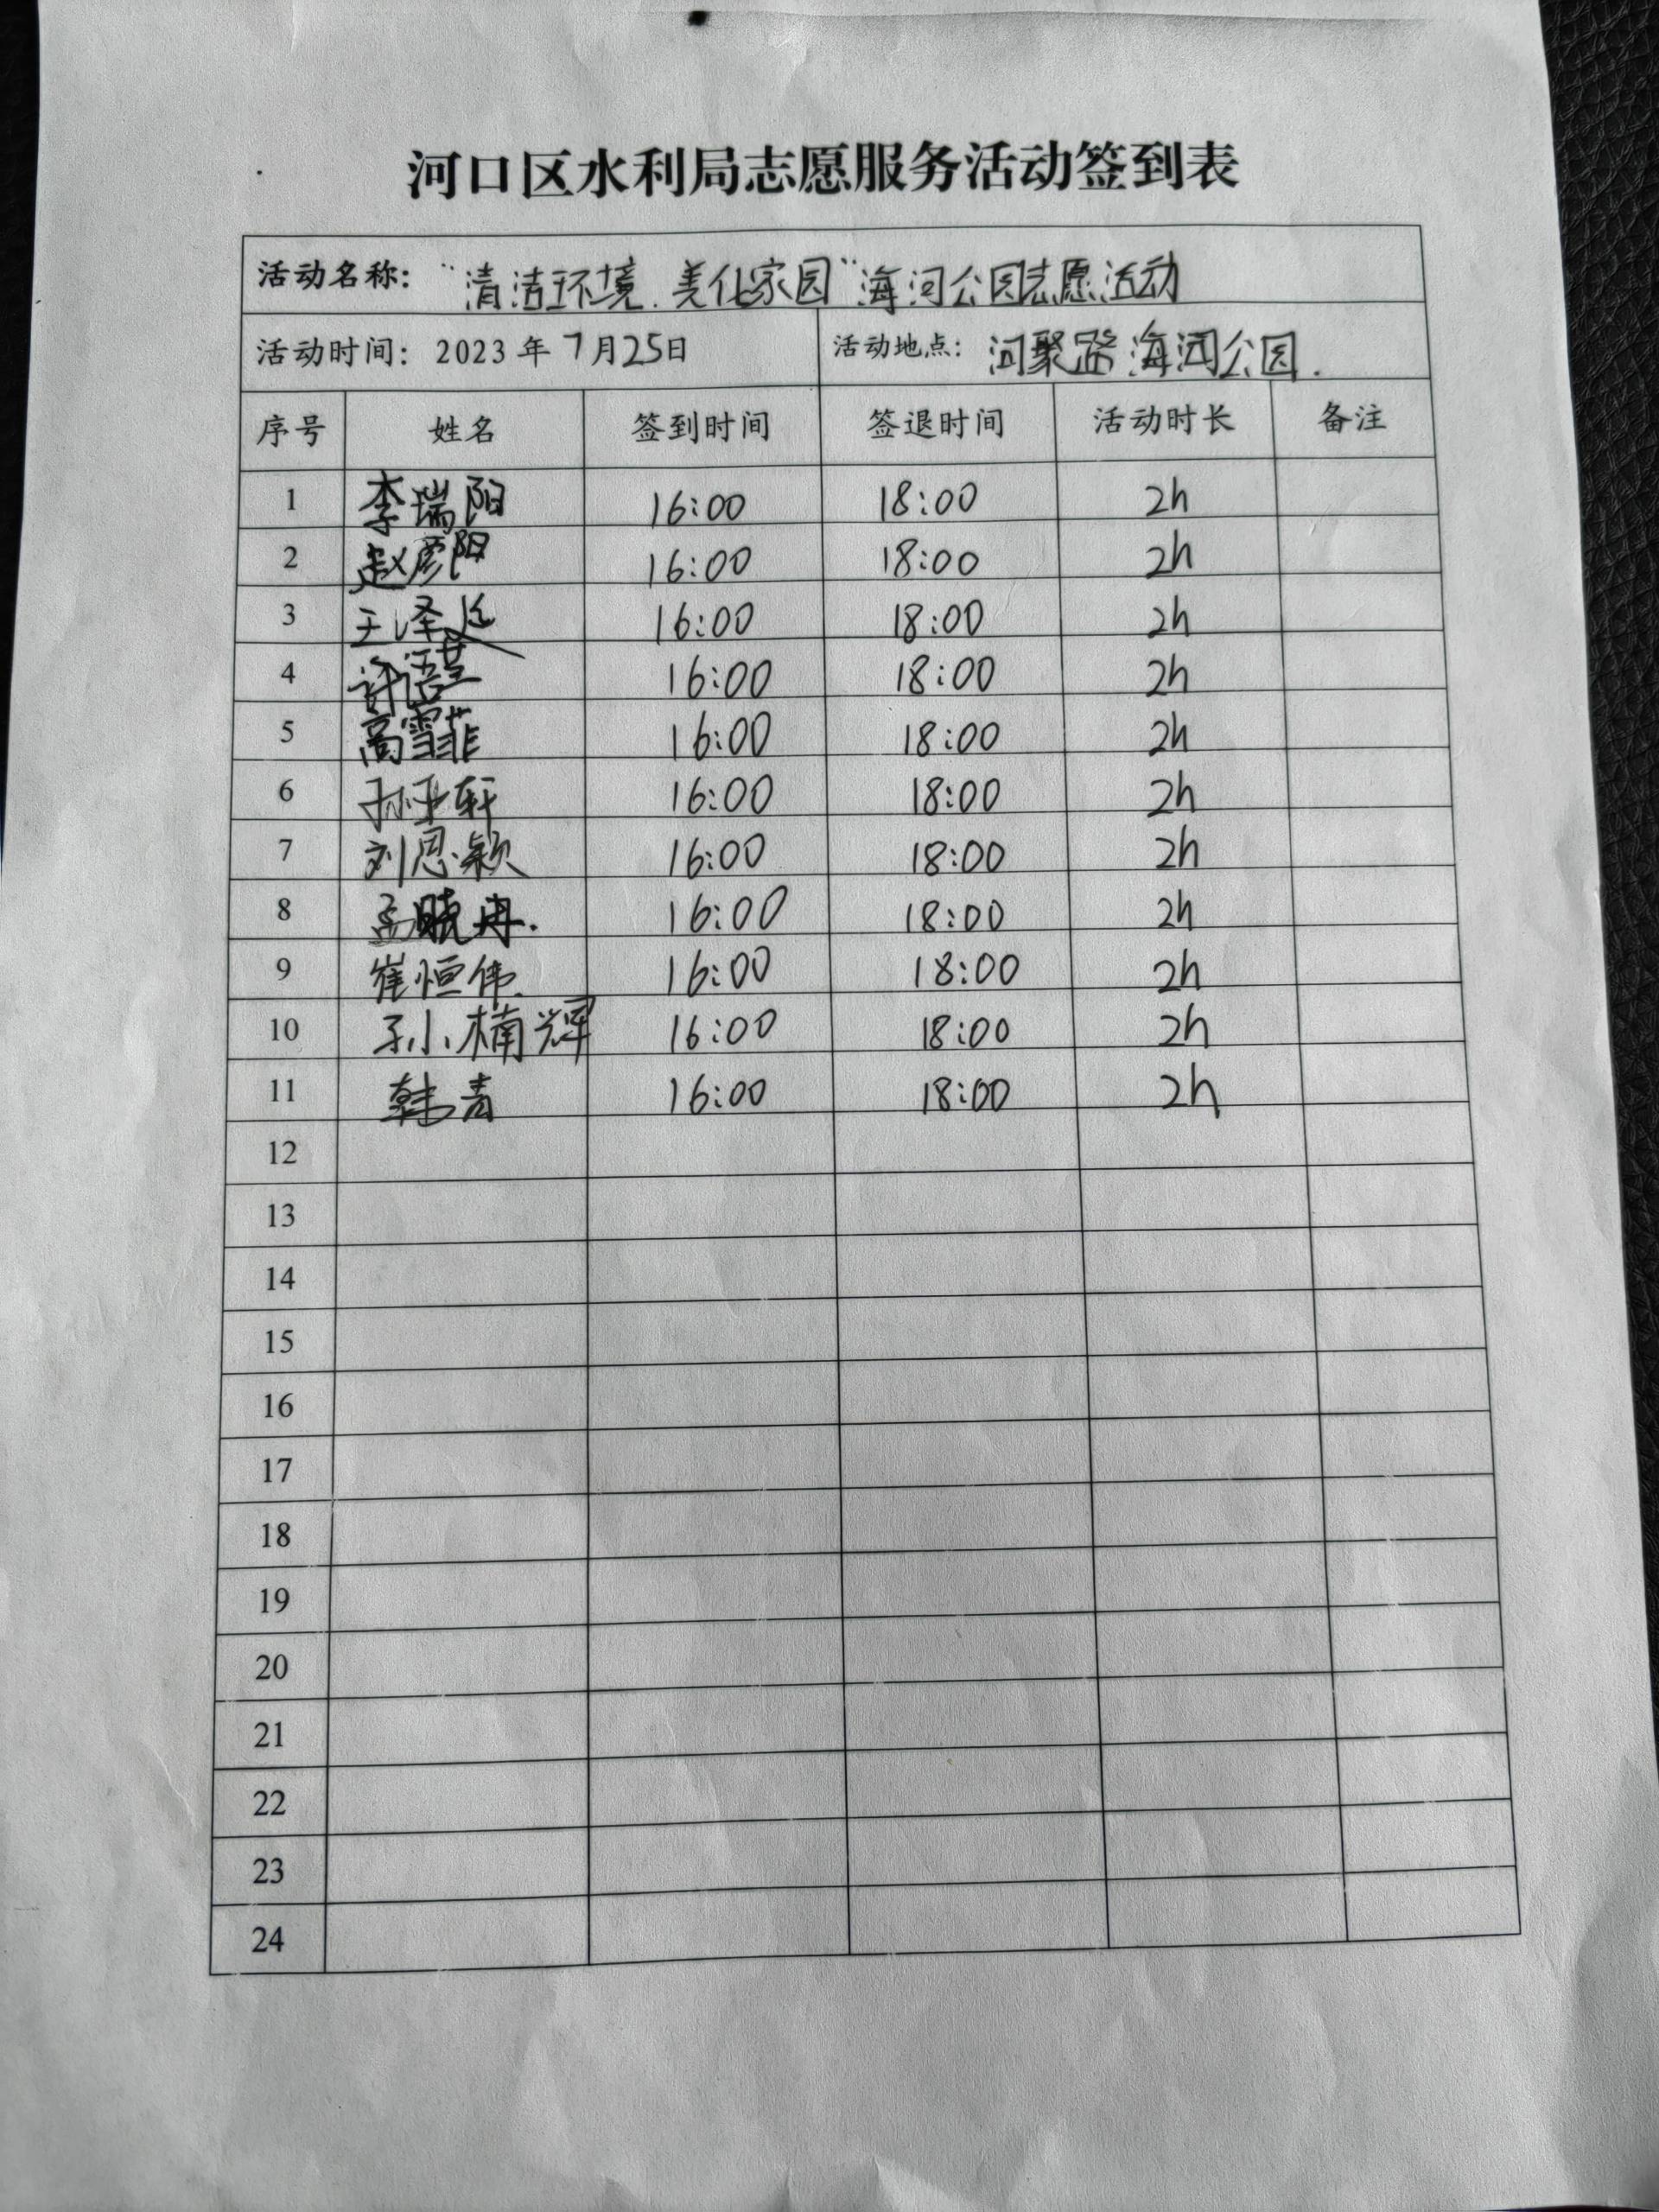 河口区水利局志愿服务活动签到表
活动名称： “清洁环境.美化家园”海河公园志愿活动
活动时间：2023年7月25日 活动地点：河聚路海河公园.
序号 姓名 签到时间 签退时间 活动时长 备注
1 李瑞阳 16:00 18:00 2h
2 赵彦阳 16:00 18:00 2h
3 王泽廷 16:00 18:00 2h
4 许语 16:00 18:00 2h
5 高雪菲 16:00 18:00 2h
6 孙于轩 16:00 18:00 2h
7 刘思颖 16:00 18:00 2h
8 孟晓冉. 16:00 18:00 2h
9 崔恒伟. 16:00 18:00 2h
10 孙小楠 辉 16:00 18:00 2h
11 韩青 16:00 18:00 2h
12
13
14
15
16
17
18
19
20
21
22
23
24